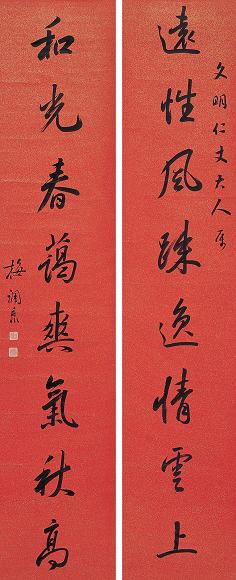 文明仁丈大人属
遠性風疎逸情雲上
和光春藹爽氣秋高
梅調鼎